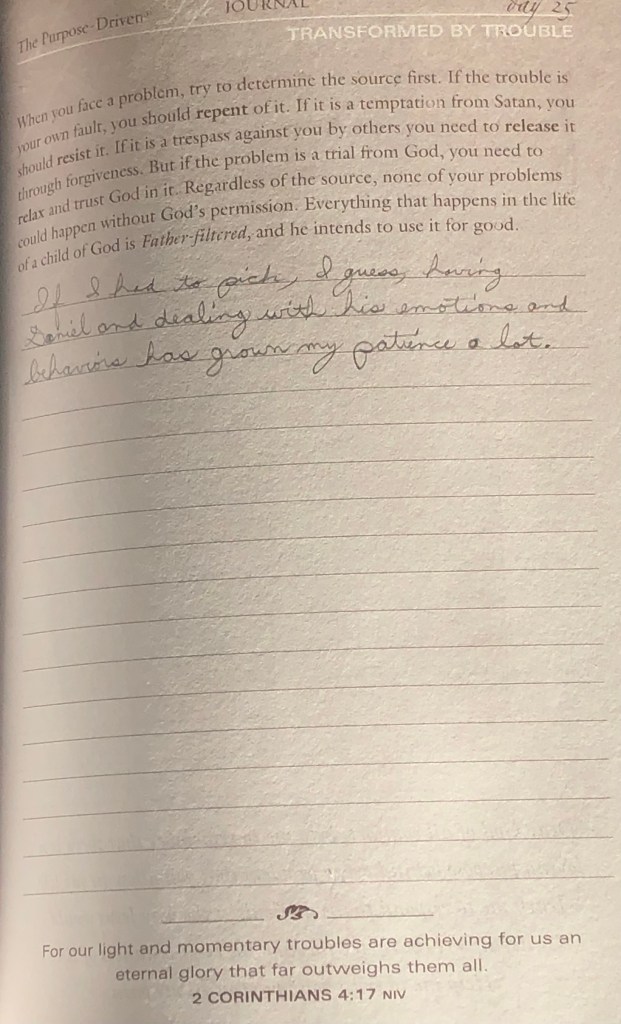 The Purpose-Driven®
JOURNAL
Day 25
TRANSFORMED BY TROUBLE
When you face a problem, try to determine the source first. If the trouble is
your own fault, you should repent of it. If it is a temptation from Satan, you
should resist it. If it is a trespass against you by others you need to release it
through forgiveness. But if the problem is a trial from God, you need to
relax and trust God in it. Regardless of the source, none of your problems
could happen without God's permission. Everything that happens in the life
of a child of God is Father-filtered, and he intends to use it for good.
If I had to pick, I guess, having
Daniel and dealing with his emotions and
behaviors has grown my patience a lot.
For our light and momentary troubles are achieving for us an
eternal glory that far outweighs them all.
2 CORINTHIANS 4:17 NIV